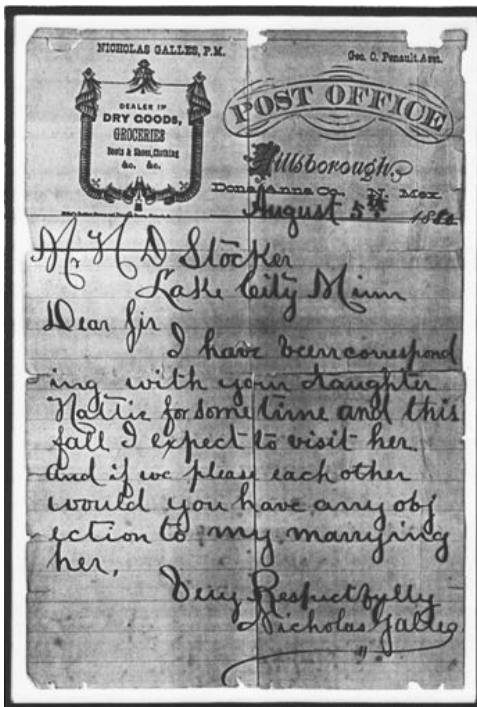 NICHOLAS GALLES, P.M.
Geo. O. Perault Asst.
DEALER IN
DRY GOODS,
GROCERIES
Boots & Shoes, Clothing
&c. &c.
POST OFFICE
Hillsborough,
Dona Anna Co., N. Mex.
August 5th
Mr. N D Stocker
Lake City Minn
Dear Sir
I have been correspond
ing with your daughter
Hattie for some time and this
fall I expect to visit her.
and if we please each other
would you have any obj
ection to my marrying
her,
Very Respectfully
Nicholas Galles